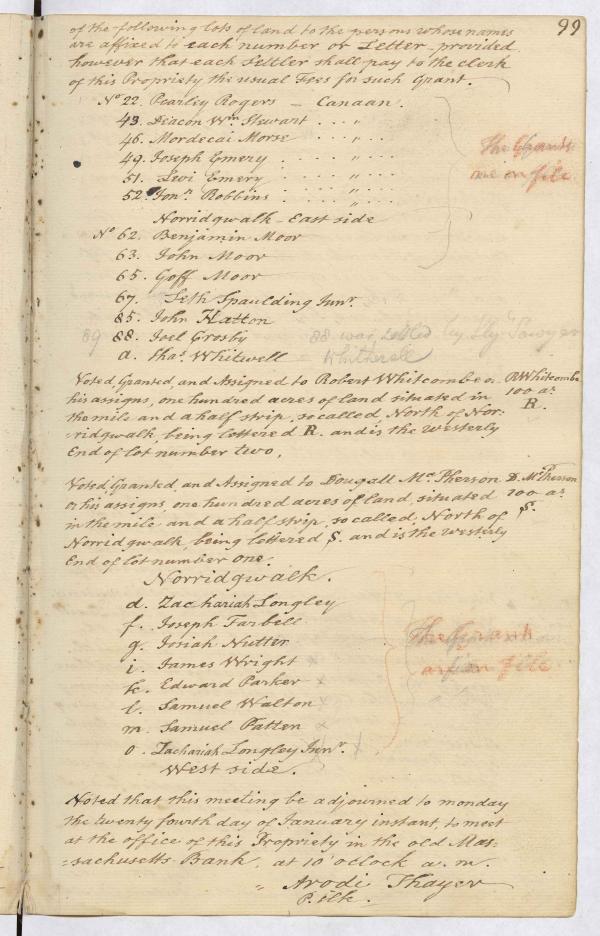 99
of the following lots of land to the persons whose names
are affixed to each number or Letter provided
however that each Settler shall pay to the clerk
of this Propriety the usual Fees for such Grant.
No 22. Pearley Rogers — Canaan.
43. Deacon Wm Stewart . . . „
46. Mordecai Morse . . . . „ . . .
49. Joseph Emery . . . . . „ . . .
51. Levi Emery . . . . . „ . . .
52. Jonn Robbins . . . . . „ . . .
The Grants
are on file
Norridgwalk East side
No 62. Benjamin Moor
63. John Moor
65. Goff Moor
67. Seth Spaulding Junr.
85. John Hatton
89 88. Joel Crosby 88 was settled by Sawyer
a. Thas. Whitwell = Whitherell
Voted, Granted, and Assigned to Robert Whitcombe or
his assigns, one hundred acres of land situated in
the mile and a half strip, so called, North of Nor-
ridgwalk, being lettered R. and is the Westerly
End of lot number two.
R Whitcombe
100 as.
R.
Voted, Granted, and Assigned to Dougall Mc Pherson
or his assigns, one hundred acres of land, situated
in the mile and a half strip, so called, North of
Norridgwalk, being lettered S. and is the westerly
End of lot number one.
D. McPherson
100 as
S.
Norridgwalk.
d. Zachariah Longley
f. Joseph Farbell
g. Josiah Nutter
i. James Wright x
k. Edward Parker x
l. Samuel Walton x
m. Samuel Patten x
o. Zachariah Longley Junr. x
West side.
The Grants
are on file
Noted that this meeting be adjourned to monday
the twenty fourth day of January instant, to meet
at the office of this Propriety in the old Mas=
=sachusetts Bank, at 10 oClock a. m.
Arodi Thayer
P. Clk.